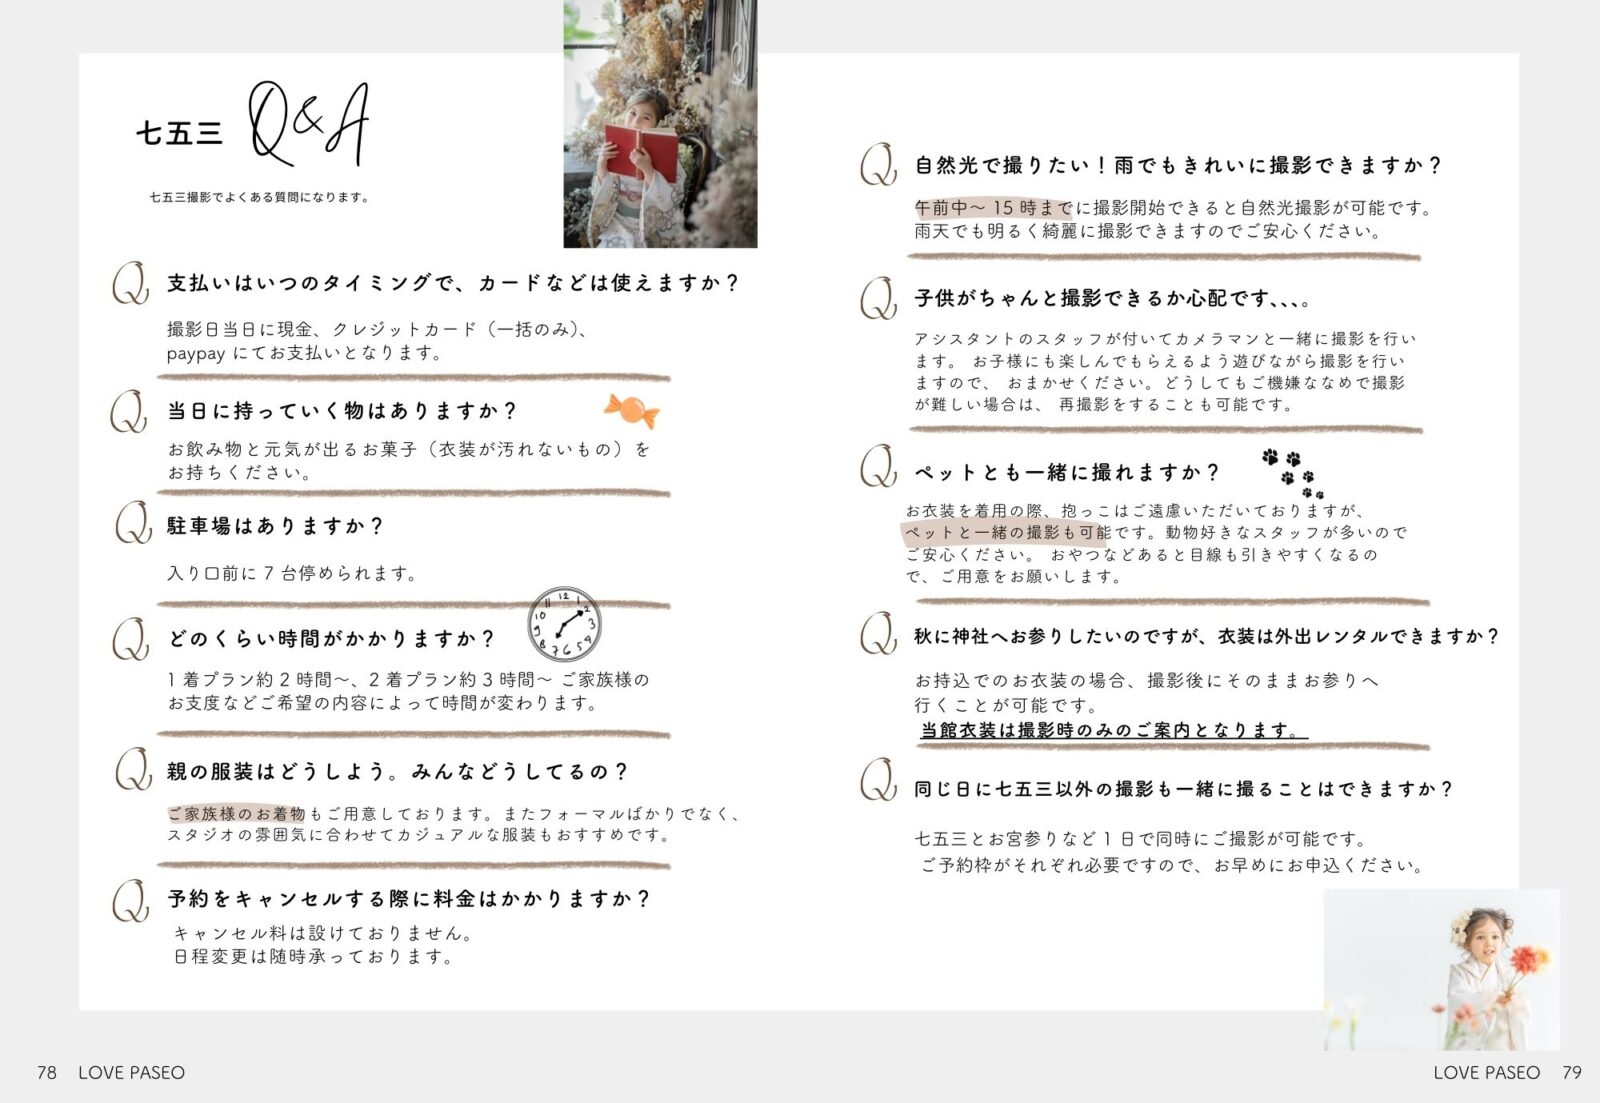 七五三 Q&A
七五三撮影でよくある質問になります。
Q 支払いはいつのタイミングで、カードなどは使えますか？
撮影日当日に現金、クレジットカード（一括のみ）、
paypay にてお支払いとなります。
Q 当日に持っていく物はありますか？
お飲み物と元気が出るお菓子（衣装が汚れないもの）を
お持ちください。
Q 駐車場はありますか？
入り口前に 7 台停められます。
Q どのくらい時間がかかりますか？
12 1 2 3 4 5 6 7 8 9 10 11
1 着プラン約 2 時間～、2 着プラン約 3 時間～ ご家族様の
お支度などご希望の内容によって時間が変わります。
Q 親の服装はどうしよう。みんなどうしてるの？
ご家族様のお着物もご用意しております。またフォーマルばかりでなく、
スタジオの雰囲気に合わせてカジュアルな服装もおすすめです。
Q 予約をキャンセルする際に料金はかかりますか？
キャンセル料は設けておりません。
日程変更は随時承っております。
78 LOVE PASEO
Q 自然光で撮りたい！雨でもきれいに撮影できますか？
午前中～ 15 時までに撮影開始できると自然光撮影が可能です。
雨天でも明るく綺麗に撮影できますのでご安心ください。
Q 子供がちゃんと撮影できるか心配です､､､。
アシスタントのスタッフが付いてカメラマンと一緒に撮影を行い
ます。 お子様にも楽しんでもらえるよう遊びながら撮影を行い
ますので、 おまかせください。どうしてもご機嫌ななめで撮影
が難しい場合は、 再撮影をすることも可能です。
Q ペットとも一緒に撮れますか？
お衣装を着用の際、抱っこはご遠慮いただいておりますが、
ペットと一緒の撮影も可能です。動物好きなスタッフが多いので
ご安心ください。 おやつなどあると目線も引きやすくなるの
で、ご用意をお願いします。
Q 秋に神社へお参りしたいのですが、衣装は外出レンタルできますか？
お持込でのお衣装の場合、撮影後にそのままお参りへ
行くことが可能です。
当館衣装は撮影時のみのご案内となります。
Q 同じ日に七五三以外の撮影も一緒に撮ることはできますか？
七五三とお宮参りなど 1 日で同時にご撮影が可能です。
ご予約枠がそれぞれ必要ですので、お早めにお申込ください。
LOVE PASEO 79